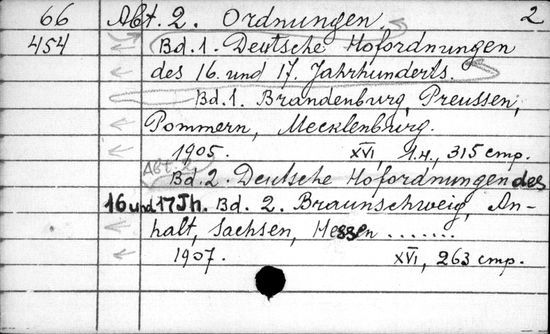 66 Abt. 2. Ordnungen 2
454 Bd. 1. Deutsche Hofordnungen
des 16. und 17. Jahrhunderts.
Bd. 1. Brandenburg, Preussen,
Pommern, Mecklenburg.
1905. XVI, 1 н., 315 стр.
Abt. 2
Bd. 2. Deutsche Hofordnungen des
16 und 17 Jh. Bd. 2. Braunschweig, An-
halt, Sachsen, Hessen .......
1907. XVI, 263 стр.